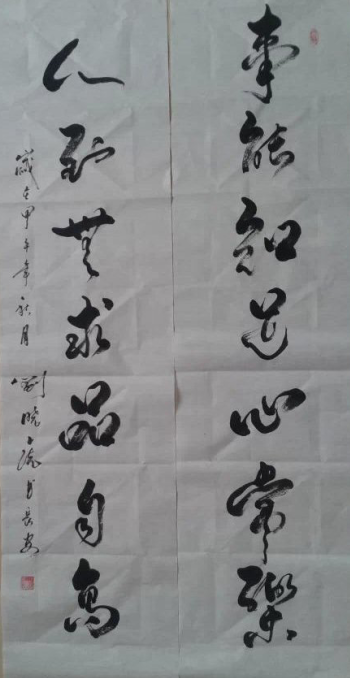 事能知足心常乐
人到無求品自高
歲在甲午年秋月
劉曉 书 長安